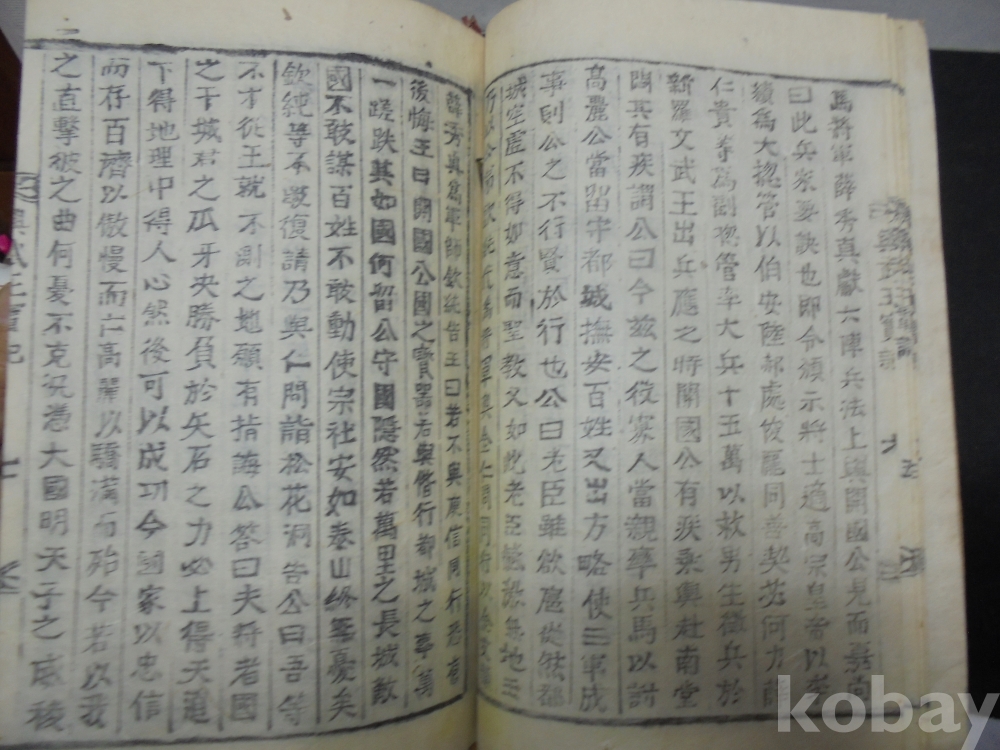 爲將軍薛秀真獻六陣兵法上與開國公見而嘉尚
曰此兵家要訣也即令頒示將士適高宗皇帝以李
績爲大摠管以伯安陸郝處俊龐同善契苾何力薛
仁貴等爲副摠管率大兵十五萬以救男生徵兵於
新羅文武王出兵應之時開國公有疾乘輿赴南堂
問兵有疾謂公曰今茲之役寡人當親率兵馬以討
高麗公當留守都城撫安百姓又出方略使三軍成
事則公之不行賢於行也公曰老臣雖欲扈從然都
城空虛不得如意而聖教又如此老臣無地
薛秀真爲軍師欽純告王曰若不與庾信同行恐有
後悔王曰開國公國之寶器若與偕行都城之事萬
一蹉跌其如國何留公守國隱然若萬里之長城敵
國不敢謀百姓不敢動使宗社安如泰山終無憂矣
欽純等不敢復請乃與仁問詣松花洞告公曰吾等
不才從王就不測之地願有指誨公答曰夫將者國
之干城君之爪牙央勝負於矢石之力必上得天道
下得地理中得人心然後可以成功今國家以忠信
而存百濟以傲慢而亡高麗以驕滿而殆今若以我
之直擊彼之曲何憂不克況憑大國明天子之威稜
kobay